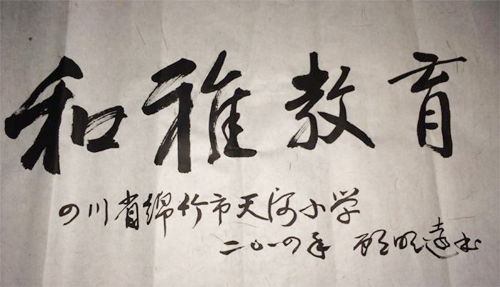 和雅教育
四川省绵竹市天河小学
二〇一四年 顾明远书